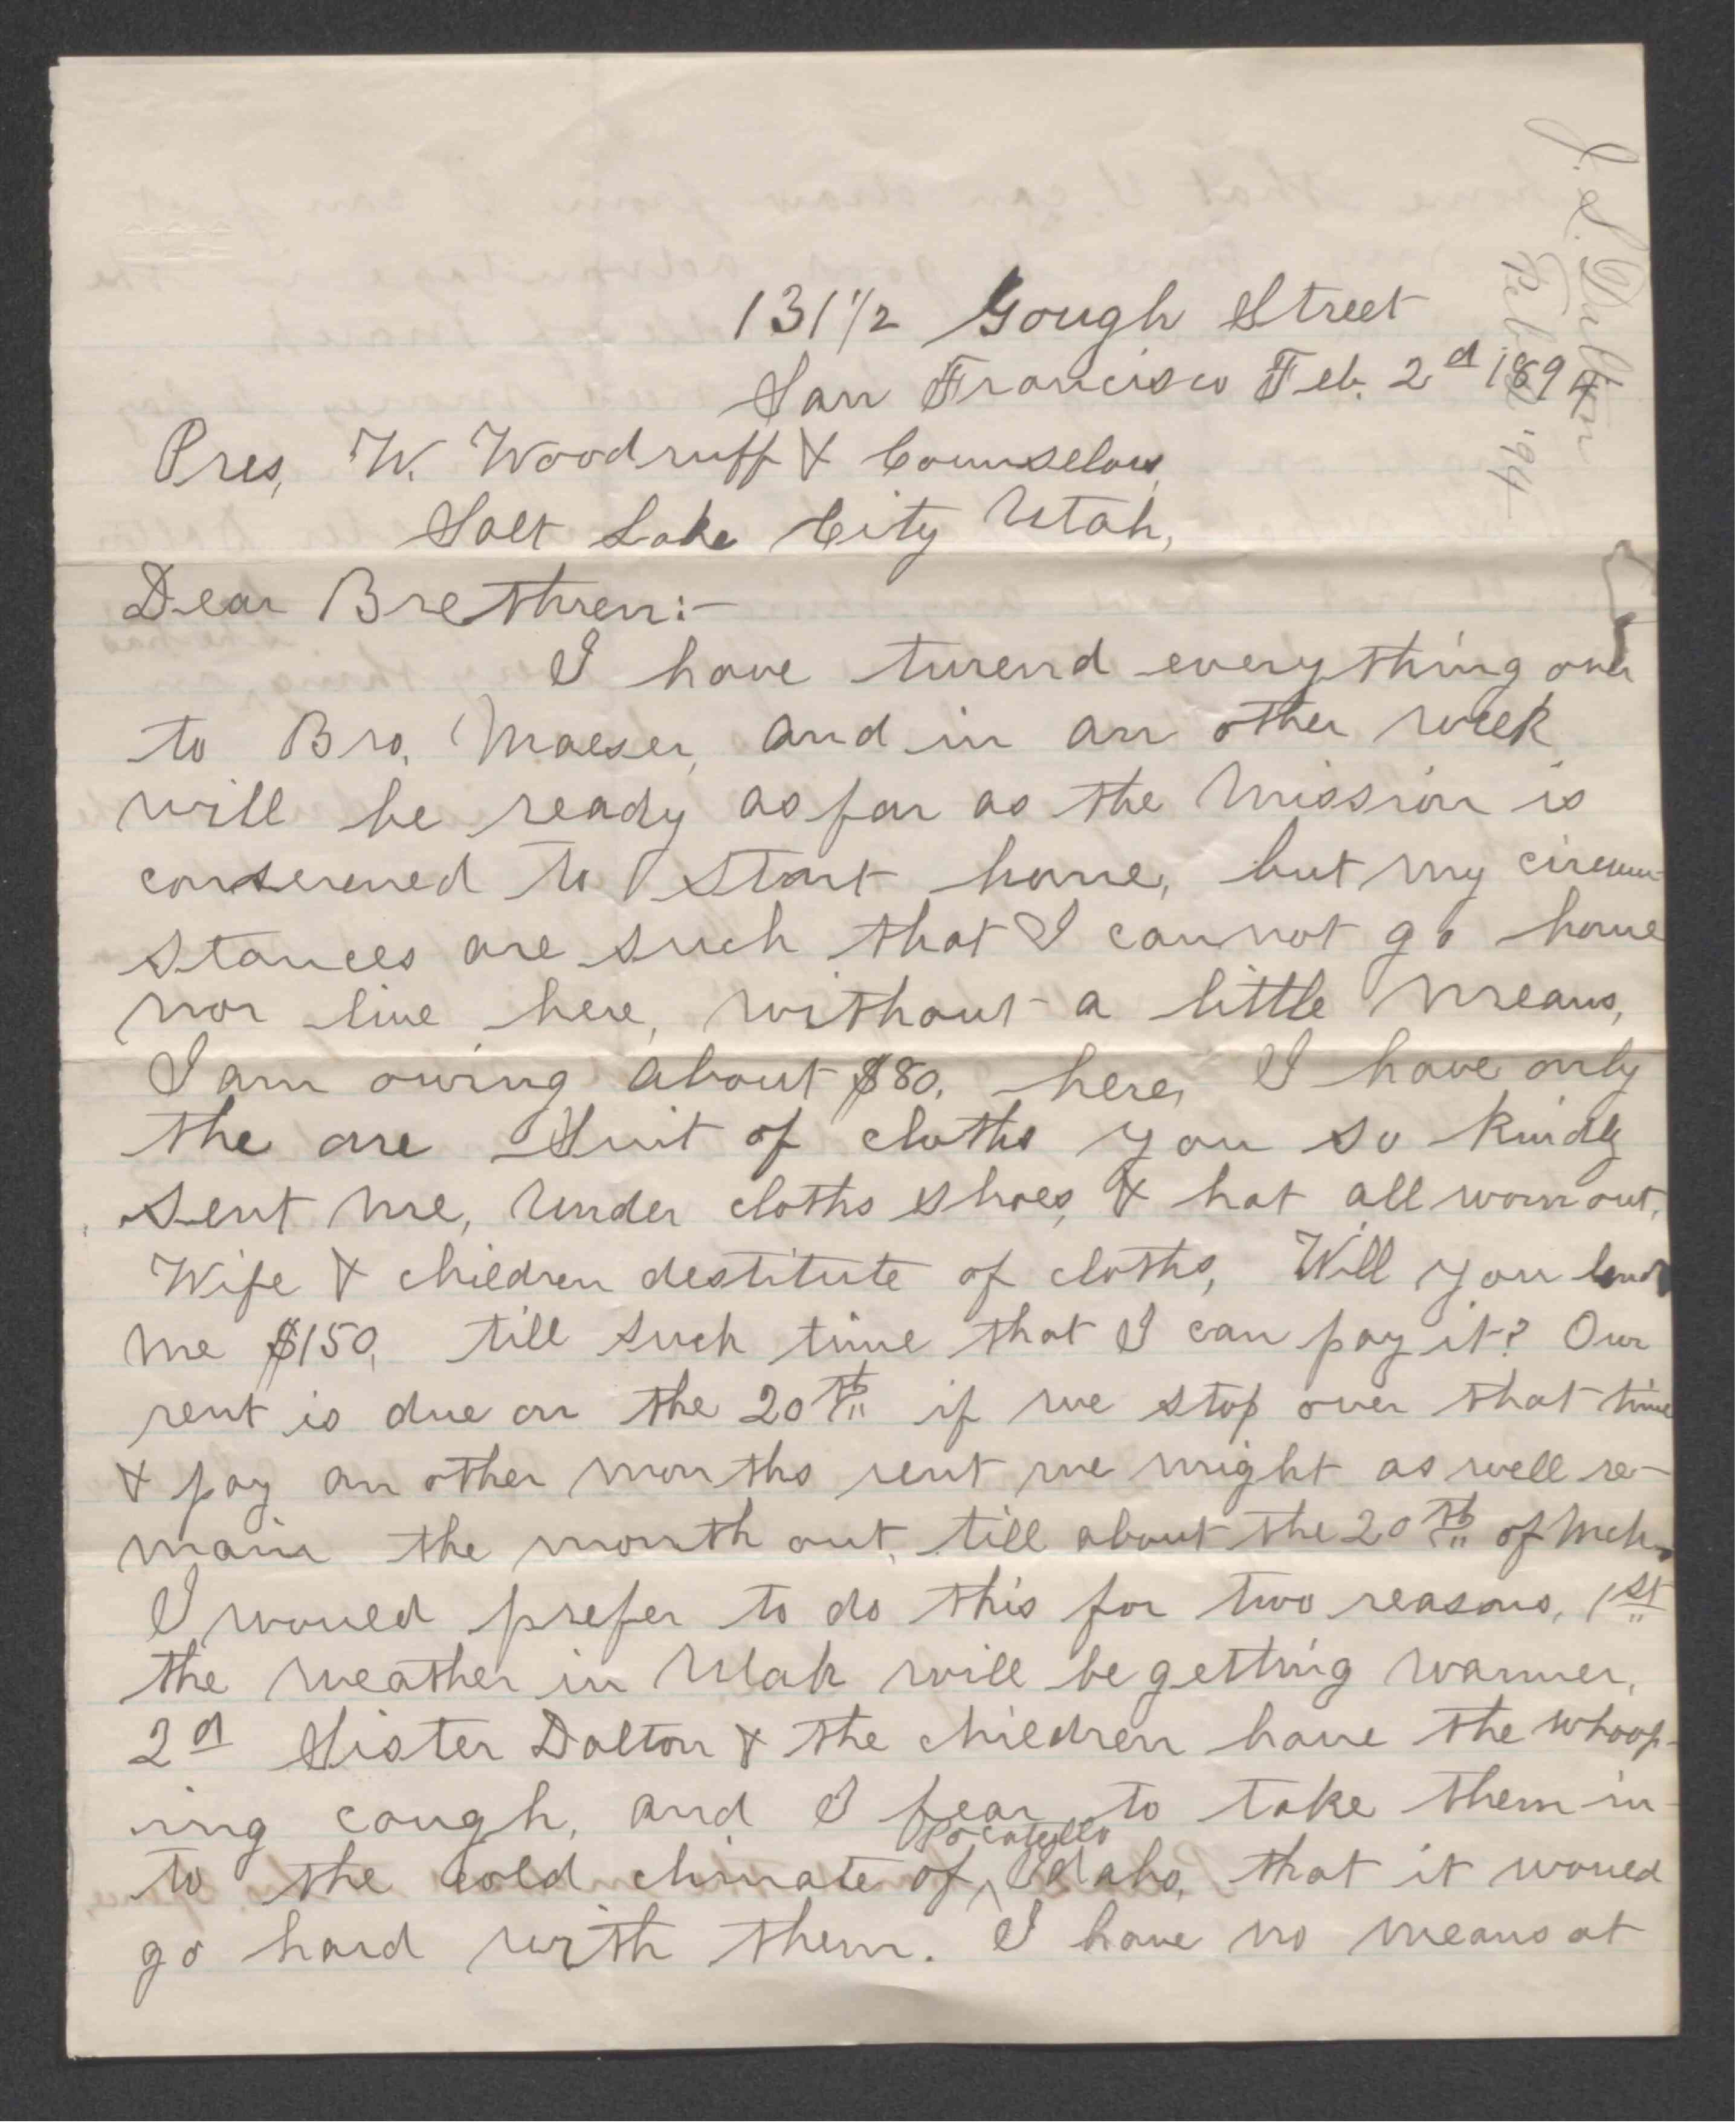 J. S. Dalton
Feb. 2 '94
131 1/2 Gough Street
San Francisco Feb. 2d 1894
Pres, W. Woodruff & Counselors,
Salt Lake City Utah,
Dear Brethren:-
I have turend everything over
to Bro. Maeser, and in an other week
will be ready as far as the Mission is
conserened to start home, but my circum-
stances are such that I cannot go home
nor live here, without a little means,
I am owing about $80. here, I have only
the one Suit of cloths you so kindly
sent me, under cloths shoes, & hat all worn out,
Wife & children destitute of cloths, Will you lend
me $150, till such time that I can pay it? Our
rent is due on the 20th if we stop over that time
& pay an other months rent we might as well re-
main the month out, till about the 20th of Mch.
I would prefer to do this for two reasons, 1st
the weather in Utah will be getting warmer,
2d Sister Dalton & the children have the whoop-
ing cough, and I fear to take them in-
to the cold climate of ^Pocatello Idaho, that it would
go hard with them. I have no means at